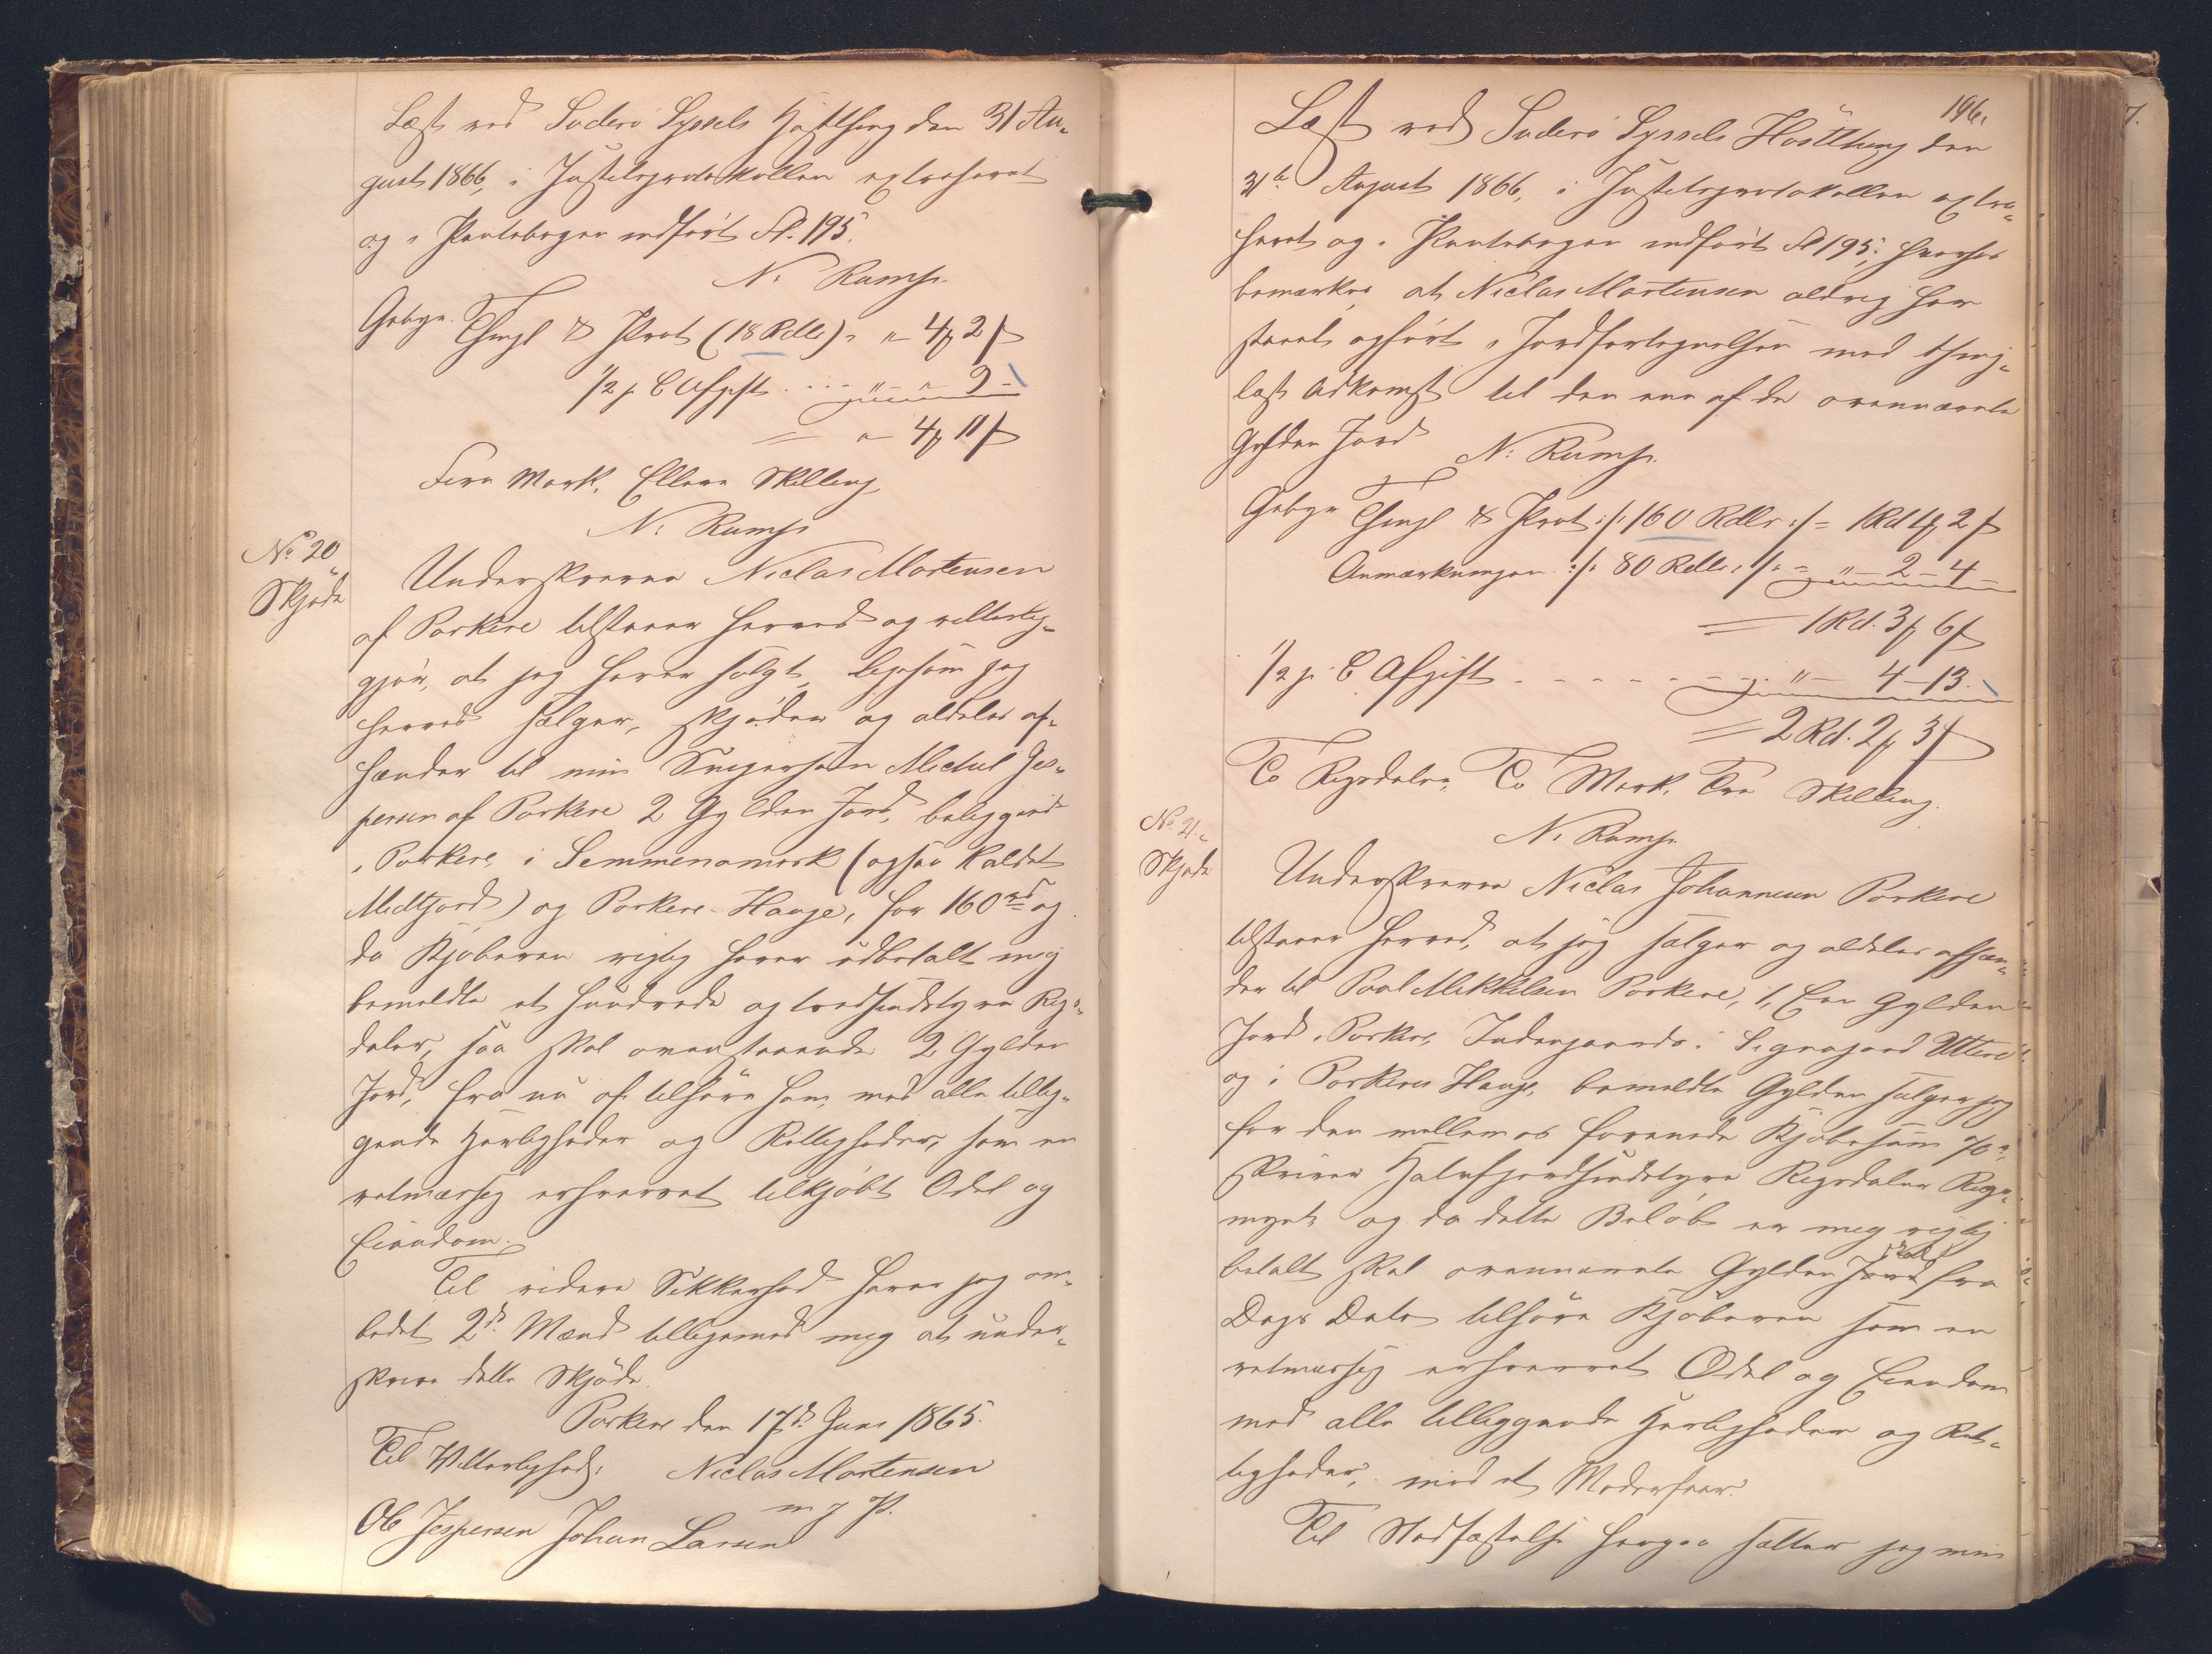 Læst ved Suderö Syssels Höstthing den 31 Au-
gust 1866, i Justitsprotokollen extraheret
og i Pantebogen indfört Fl. 195.
N. Rump.
Gebyr. Thingl & Prot (18 Rdlr) = „ - 4 ₰ 2 ß
1/2 p. C Afgift . . . . „ - „ - 9 -
= „ - 4 ₰ 11 ß
Fire Mark, Elleve Skilling
N. Rump
No 20
Skjöde
Underskrevne Niclas Mortensen
af Porkere tilstaaer herved og vitterlig-
gjör, at jeg haver solgt, ligesom jeg
herved sælger, skjöder og aldeles af-
hænder til min Svigersön Michel Jes-
persen af Porkere 2 Gylden Jord, beliggende
i Porkere, i Semmenamork (ogsaa kaldet
Midtjord) og Porkere-Hauge, for 160 rd og
da Kjöberen rigtig haver udbetalt mig
bemeldte et hundrede og tredsindstyve Rigs-
daler, saa skal ovenstaaende 2 Gylden
Jord, fra nu af tilhöre ham, med alle tillig-
gende Herligheder og Rettigheder, som en
retmæssig erhvervet tilkjöbt Odel og
Eiendom.
Til videre Sikkerhed haver jeg om-
bedet 2de Mænd tilligemed mig at under-
skrive dette Skjöde.
Porkere den 17de Juni 1865.
Til Vitterlighed: Niclas Mortensen
m. f. P.
Ole Jespersen Johan Larsen
196.
Læst ved Suderö Syssels Höstthing den
31te August 1866, i Justitsprotokollen extra-
heret og i Pantebogen indfört Fl 195; hvorhos
bemærkes, at Niclas Mortensen aldrig har
staaet opfört i Jordfortegnelsen med thing-
læst Adkomst til den ene af de ovennævnte
Gylden Jord N. Rump.
Gebyr Thingl & Prot :/: 160 Rdlr :/: = 1 Rd 1 ₰ 2 ß
Anmærkningen :/: 80 Rdlr :/: = „ - 2 - 4 -
= 1 Rd. 3 ₰ 6 ß
1/2 p. C Afgift - - - - - - - „ - 4 - 13.
= 2 Rd. 2 ₰ 3 ß
To Rigsdaler, To Mark, Tre Skilling.
N. Rump
No 21.
Skjöde
Underskrevne Niclas Johannesen Porkere
tilstaaer herved, at jeg sælger og aldeles afhæn-
der til Poul Mikkelsen Porkere, 1, Een Gylden
Jord i Porkere, Indengaards i Signagaard Uttere
og i Porkeres Hauge, bemeldte Gylden sælger jeg
for den mellem os forenede Kjöbesum 70 rd,
skriver Halvfjerdsindstyve Rigsdaler Rigs-
mynt og da dette Belöb er mig rigtig
betalt skal ovennævnte Gylden Jord fra
Dags Dato tilhöre Kjöberen som en
retmæssig erhvervet Odel og Eiendom
med alle tilliggende Herligheder og Ret-
tigheder, med et Moderfaar.
Til Stadfæstelse herpaa sætter jeg min